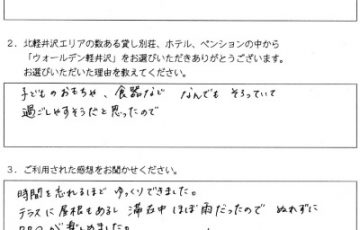 2. 北軽井沢エリアの数ある貸し別荘、ホテル、ペンションの中から
「ウォールデン軽井沢」をお選びいただきありがとうございます。
お選びいただいた理由を教えてください。
子どものおもちゃ、食器など なんでも そろっていて
過ごしやすそうだと思ったので
3. ご利用された感想をお聞かせください。
時間を忘れるほど ゆっくりできました。
テラスに屋根もあるし 滞在中 ほぼ雨だったので ぬれずに
が楽しめました。